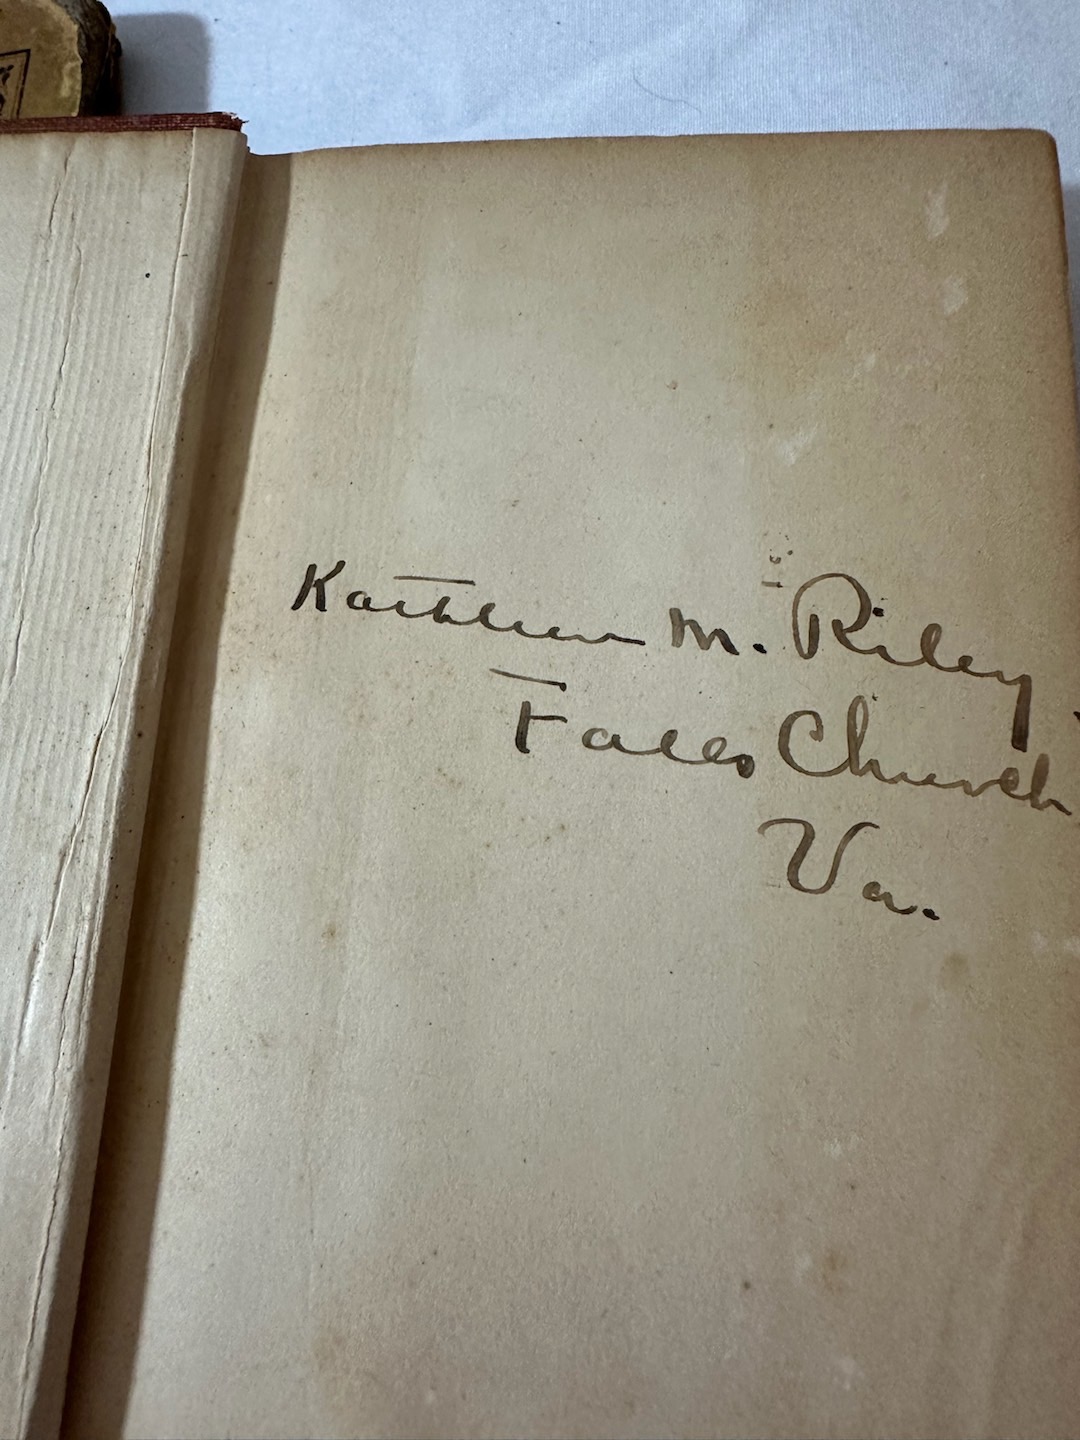 Kathleen M. Riley
Falls Church
Va.